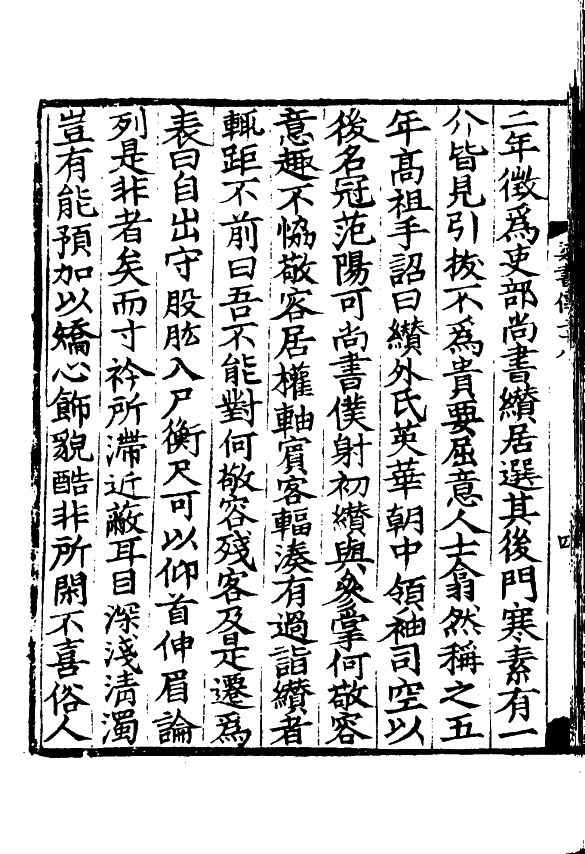 二年徵爲吏部尚書纘居選其後門寒素有一
介皆見引拔不爲貴要屈意人士翕然稱之五
年高祖手詔曰纘外氏英華朝中領袖司空以
後名冠范陽可尚書僕射初纘與叅掌何敬容
意趣不恊敬容居權軸賓客輻湊有過詣纘者
輙距不前曰吾不能對何敬容殘客及是遷爲
表曰自出守股肱入尸衡尺可以仰首伸眉論
列是非者矣而寸衿所滯近蔽耳目深淺清濁
豈有能預加以矯心飾貌酷非所閑不喜俗人